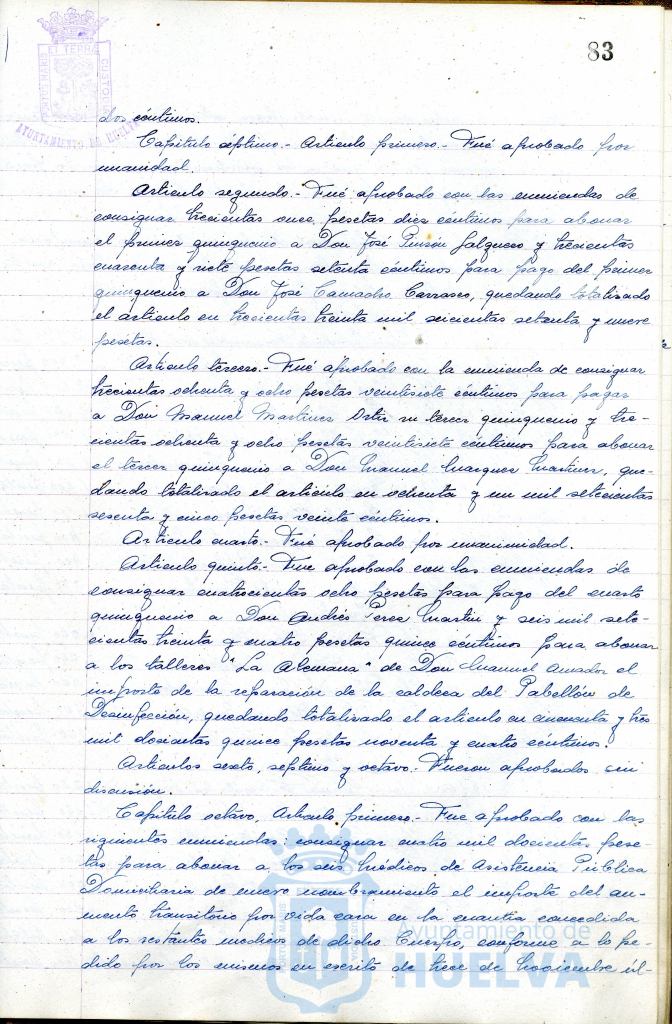 83
PORTUS MARIS ET TERRÆ CUSTODIA
AYUNTAMIENTO DE HUELVA
dos céntimos.
Capitulo séptimo.- Articulo primero.- Fué aprobado por
unanimidad.
Articulo segundo.- Fué aprobado con las enmiendas de
consignar trescientas once pesetas diez céntimos para abonar
el primer quinquenio a Don José Pinzón Galguero y trescientas
cuarenta y siete pesetas setenta céntimos para pago del primer
quinquenio a Don José Camacho Carrasco, quedando totalizado
el articulo en trescientas treinta mil seiscientas setenta y nueve
pesetas.
Articulo tercero.- Fué aprobado con la enmienda de consignar
trescientas ochenta y ocho pesetas veintisiete céntimos para pagar
a Don Manuel Martinez Ortiz su tercer quinquenio y tres-
cientas ochenta y ocho pesetas veintisiete céntimos para abonar
el tercer quinquenio a Don Manuel Marquez Martinez, que-
dando totalizado el articulo en ochenta y un mil setecientas
sesenta y cinco pesetas veinte céntimos.
Articulo cuarto.- Fué aprobado por unanimidad.
Articulo quinto.- Fue aprobado con las enmiendas de
consignar cuatrocientas ocho pesetas para pago del cuarto
quinquenio a Don Andrés Perez Martin y seis mil sete-
cientas treinta y cuatro pesetas quince céntimos para abonar
a los talleres "La Alemana" de Don Manuel Amador el
importe de la reparación de la caldera del Pabellón de
Desinfección, quedando totalizado el articulo en cincuenta y tres
mil doscientas quince pesetas noventa y cuatro céntimos.
Articulos sexto, septimo y octavo.- Fueron aprobados sin
discusión.
Capitulo octavo, Articulo primero.- Fue aprobado con las
siguientes enmiendas: consignar cuatro mil doscientas pese-
tas para abonar a los seis Médicos de Asistencia Pública
Domiciliaria de nuevo nombramiento el importe del au-
mento transitorio por vida cara en la cuantia concedida
a los restantes medicos de dicho Cuerpo, conforme a lo pe-
dido por los mismos en escrito de trece de Noviembre úl-
Ayuntamiento de
HUELVA